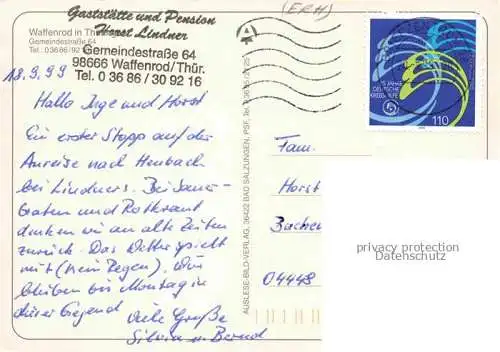 (ERH)
Gaststätte und Pension
Horst Lindner
Gemeindestraße 64
98666 Waffenrod/Thür.
Tel. 0 36 86 / 30 92 16
Waffenrod in
Gemeindestraße 64
18.9.99
Hallo Inge und Horst
Ein erster Stopp auf der
Anreise nach Heubach
bei Lindners. Bei Sauer-
braten und Rotkraut
denken wir an alte Zeiten
zurück. Das Wetter spielt
mit (kein Regen), Wir
bleiben bis Montag in
dieser Gegend
Viele Grüße
Silvia u. Bernd
AUSLESE-BILD-VERLAG, 36422 BAD SALZUNGEN, PSF, Tel.
25 JAHRE
DEUTSCHE
KREBSHILFE
110
Fam.
Horst
04448
privacy protection
Datenschutz